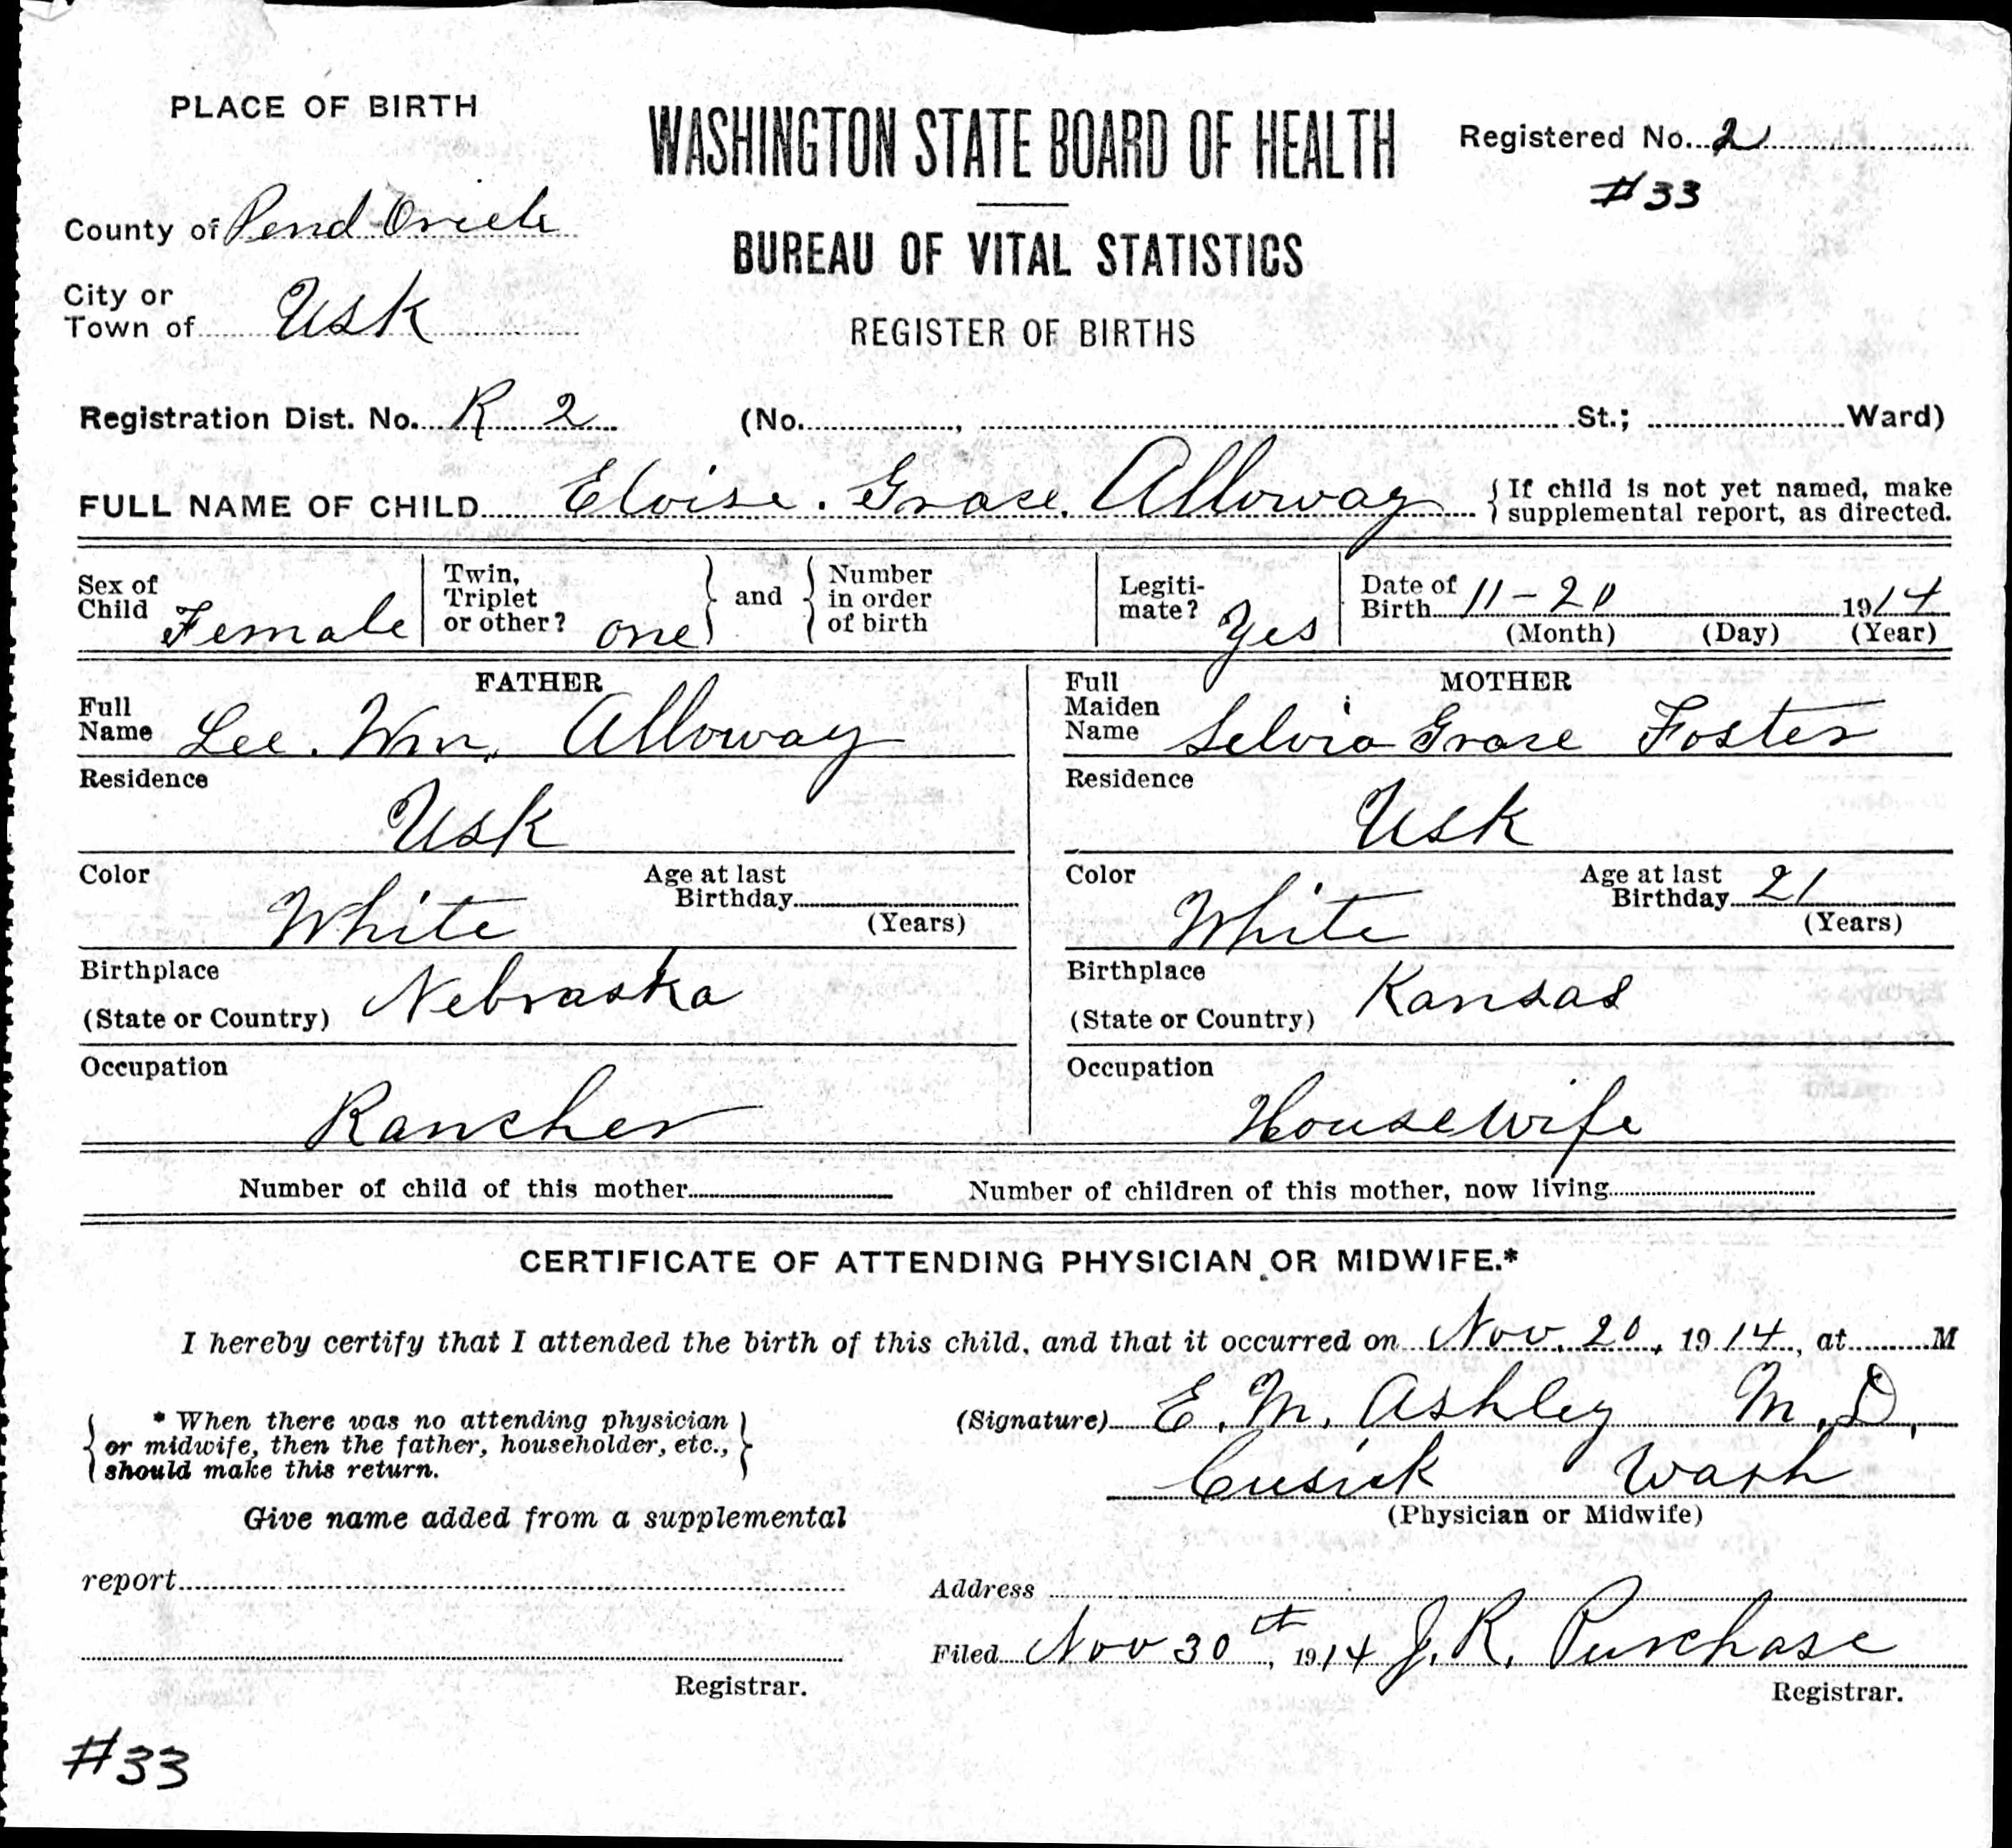 PLACE OF BIRTH
WASHINGTON STATE BOARD OF HEALTH
Registered No. 2
#33
County of Pend Oriele
BUREAU OF VITAL STATISTICS
City or Town of Usk
REGISTER OF BIRTHS
Registration Dist. No. R 2 (No. , St.; Ward)
FULL NAME OF CHILD Eloise. Grace. Alloway
{If child is not yet named, make
supplemental report, as directed.
Sex of Child Female
Twin, Triplet or other? one } and { Number in order of birth
Legiti-mate? Yes
Date of Birth 11-20 1914
(Month) (Day) (Year)
FATHER
Full Name Lee. Wm. Alloway
Residence
Usk
Color White
Age at last Birthday
(Years)
Birthplace
(State or Country) Nebraska
Occupation
Rancher
MOTHER
Full Maiden Name Selvia Grace Foster
Residence
Usk
Color White
Age at last Birthday 21
(Years)
Birthplace
(State or Country) Kansas
Occupation
Housewife
Number of child of this mother Number of children of this mother, now living
CERTIFICATE OF ATTENDING PHYSICIAN OR MIDWIFE.*
I hereby certify that I attended the birth of this child, and that it occurred on Nov. 20, 1914, at M
{ * When there was no attending physician
or midwife, then the father, householder, etc.,
should make this return. }
(Signature) E. M. Ashley M.D.
Cusick Wash
(Physician or Midwife)
Give name added from a supplemental
report
Registrar.
Address
Filed Nov 30th, 1914 J. R. Purchase
Registrar.
#33